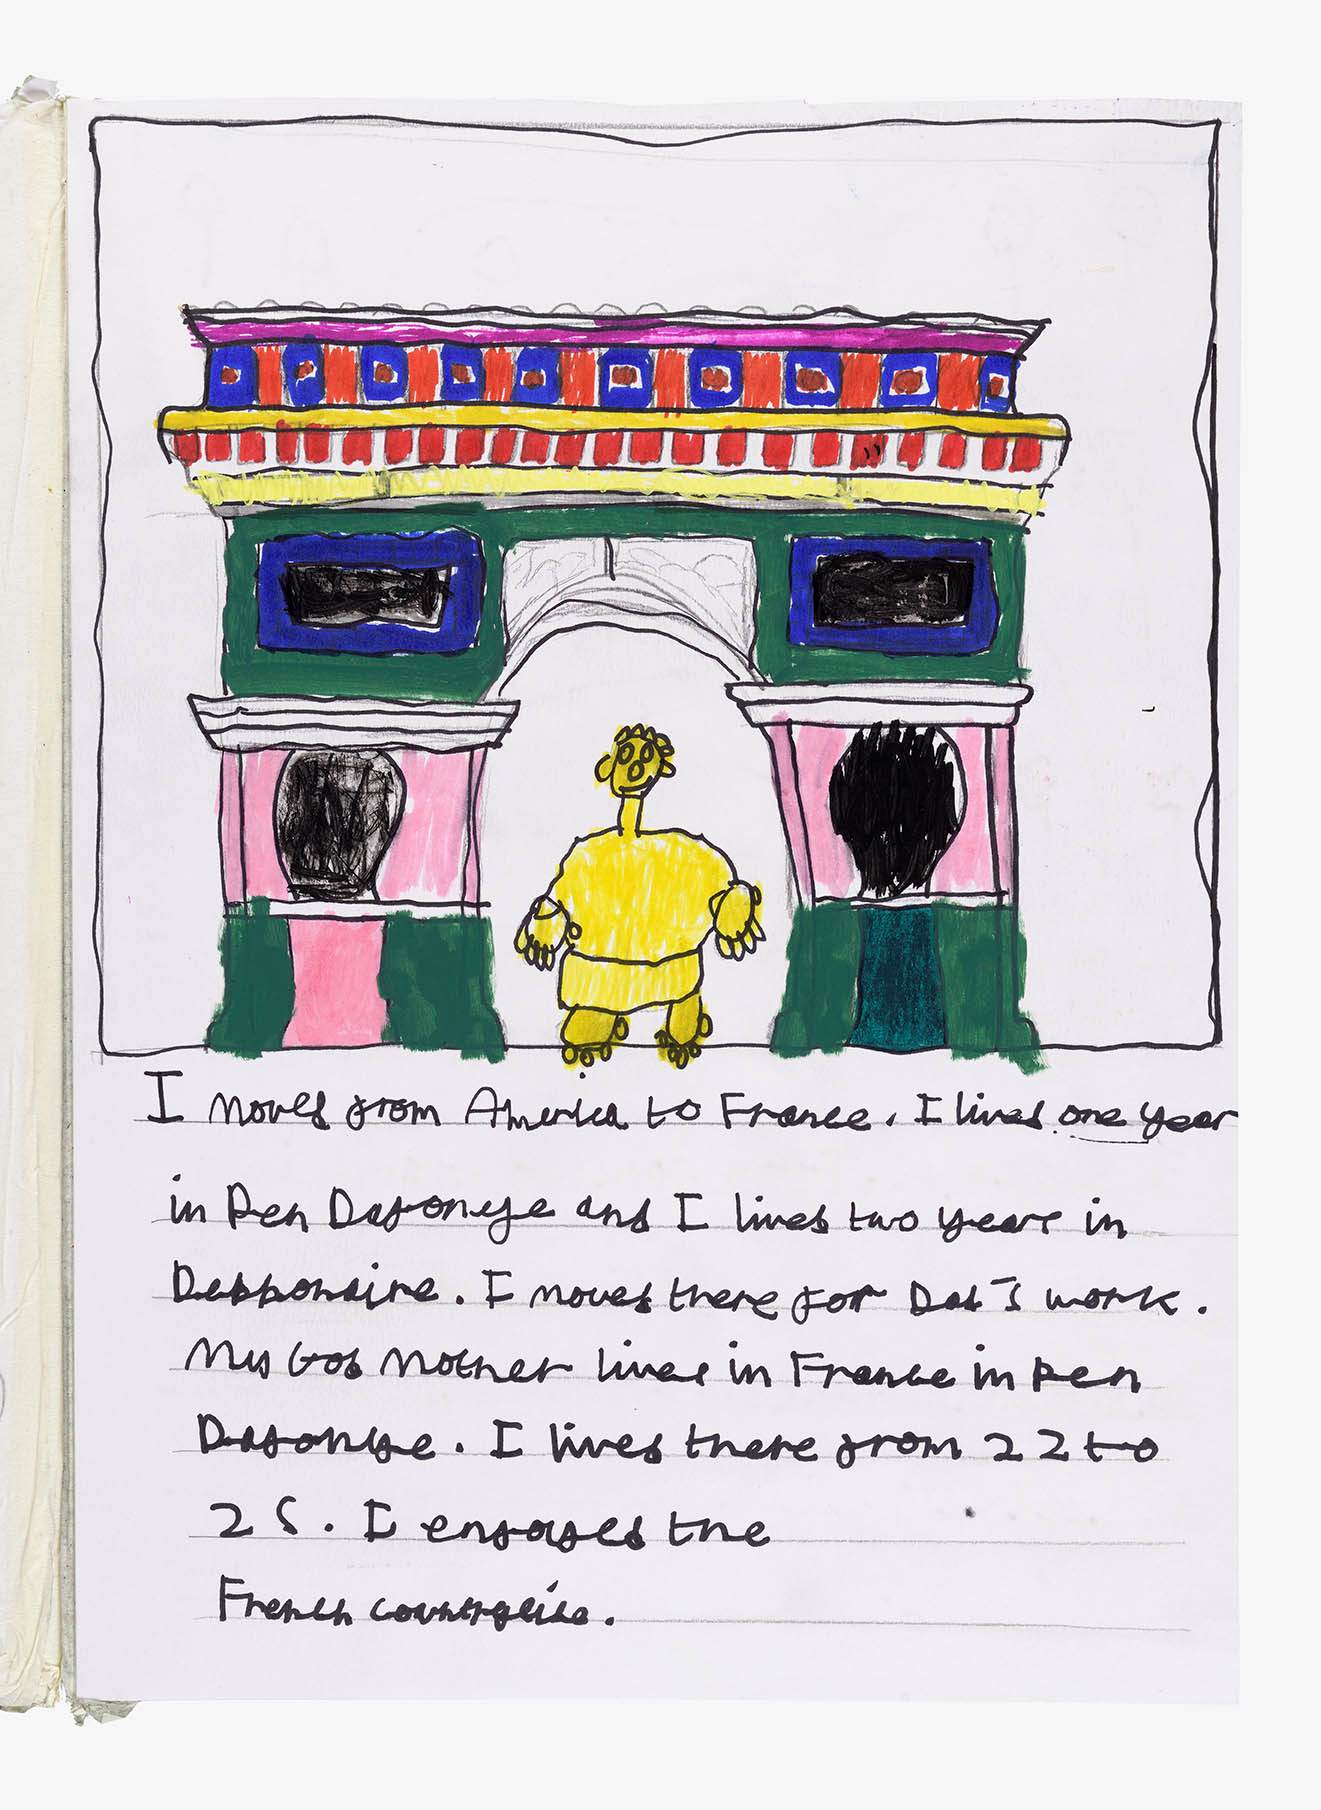 I moves from America to France. I lives one year
in Pen Dasonye and I lives two year in
Debbonaire. I moves there for Dad's work.
My God Mother lives in France in Pen
Dasonye. I lives there from 22 to
25. I enjoyes the
French countryside.